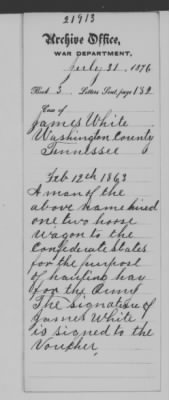 21913
Archive Office,
WAR DEPARTMENT,
July 31. 1876
Book 3. Letters Sent, page 132
Case of
James White
Washington County
Tennessee
Feb 12th 1863
A man of the
above name hired
one two horse
wagon to the
Confederate States
for the purpose
of hauling hay
for the Army
The signature of
James White
is signed to the
Voucher,